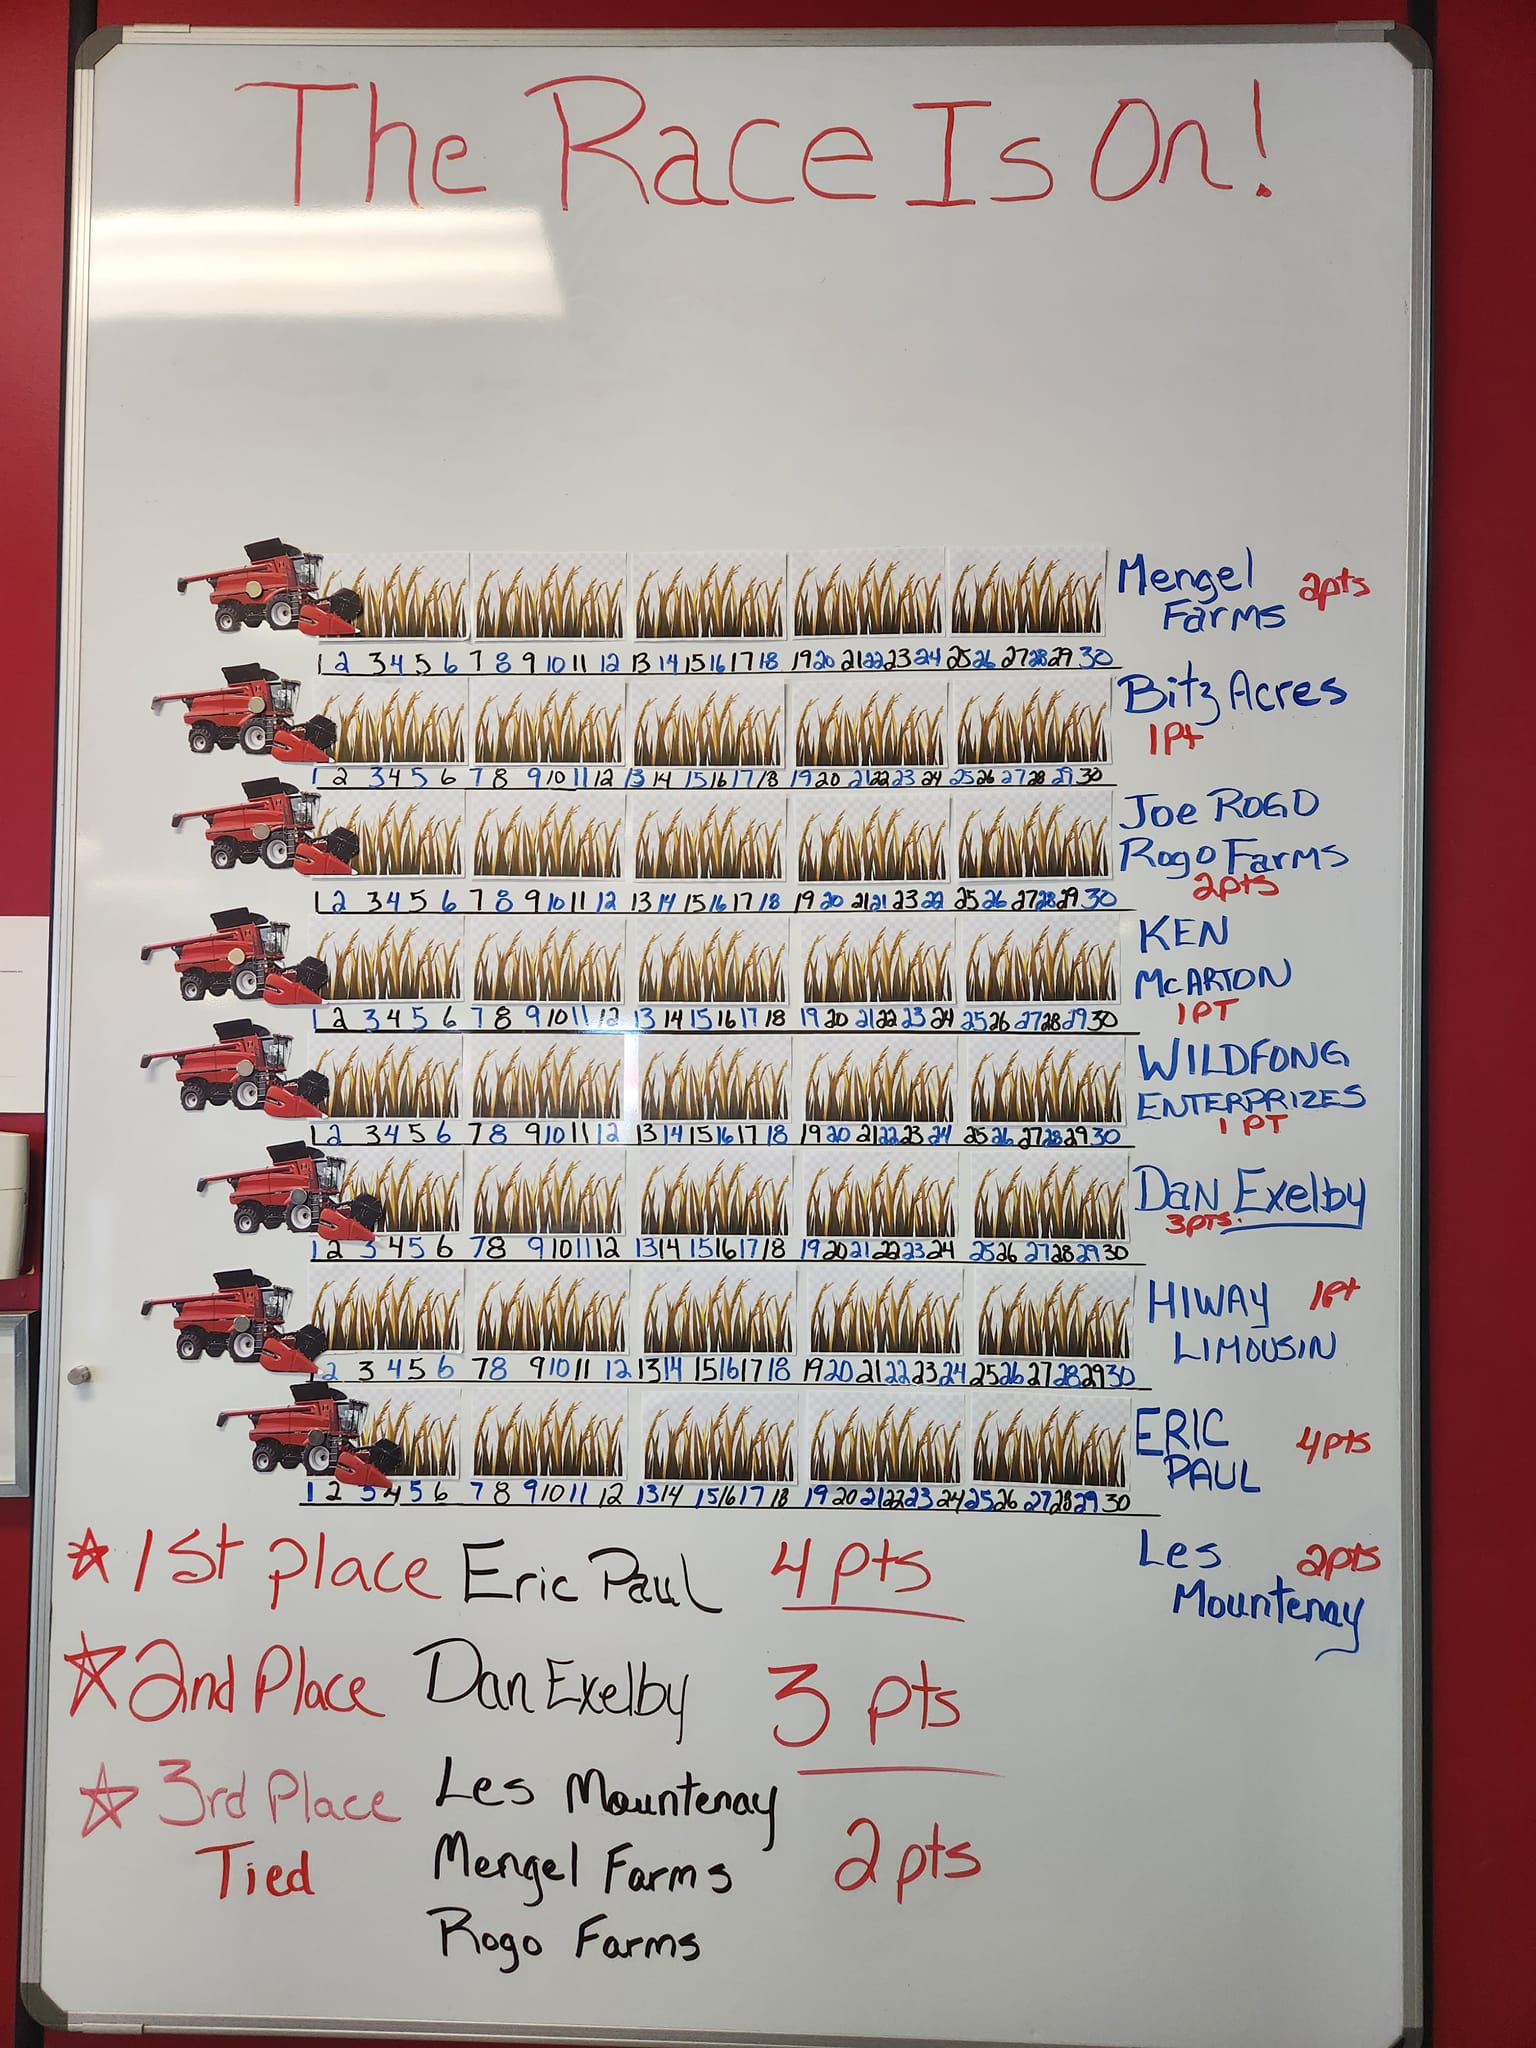 The Race Is On!
Mengel Farms 2pts
1 2 3 4 5 6 7 8 9 10 11 12 13 14 15 16 17 18 19 20 21 22 23 24 25 26 27 28 29 30
Bitz Acres
1Pt
1 2 3 4 5 6 7 8 9 10 11 12 13 14 15 16 17 18 19 20 21 22 23 24 25 26 27 28 29 30
Joe ROGO
Rogo Farms
2pts
1 2 3 4 5 6 7 8 9 10 11 12 13 14 15 16 17 18 19 20 21 21 23 22 25 26 27 28 29 30
KEN
McARTON
1 PT
1 2 3 4 5 6 7 8 9 10 11 12 13 14 15 16 17 18 19 20 21 22 23 24 25 26 27 28 29 30
WILDFONG
ENTERPRIZES
1 PT
1 2 3 4 5 6 7 8 9 10 11 12 13 14 15 16 17 18 19 20 21 22 23 24 25 26 27 28 29 30
Dan Exelby
3pts.
1 2 3 4 5 6 7 8 9 10 11 12 13 14 15 16 17 18 19 20 21 22 23 24 25 26 27 28 29 30
HIWAY 1pt
LIMOUSIN
2 3 4 5 6 7 8 9 10 11 12 13 14 15 16 17 18 19 20 21 22 23 24 25 26 27 28 29 30
ERIC 4pts
PAUL
1 2 3 4 5 6 7 8 9 10 11 12 13 14 15 16 17 18 19 20 21 22 23 24 25 26 27 28 29 30
Les 2pts
Mountenay
1st place Eric Paul 4pts
2nd Place Dan Exelby 3 pts
3rd Place Les Mountenay
Tied Mengel Farms 2pts
Rogo Farms